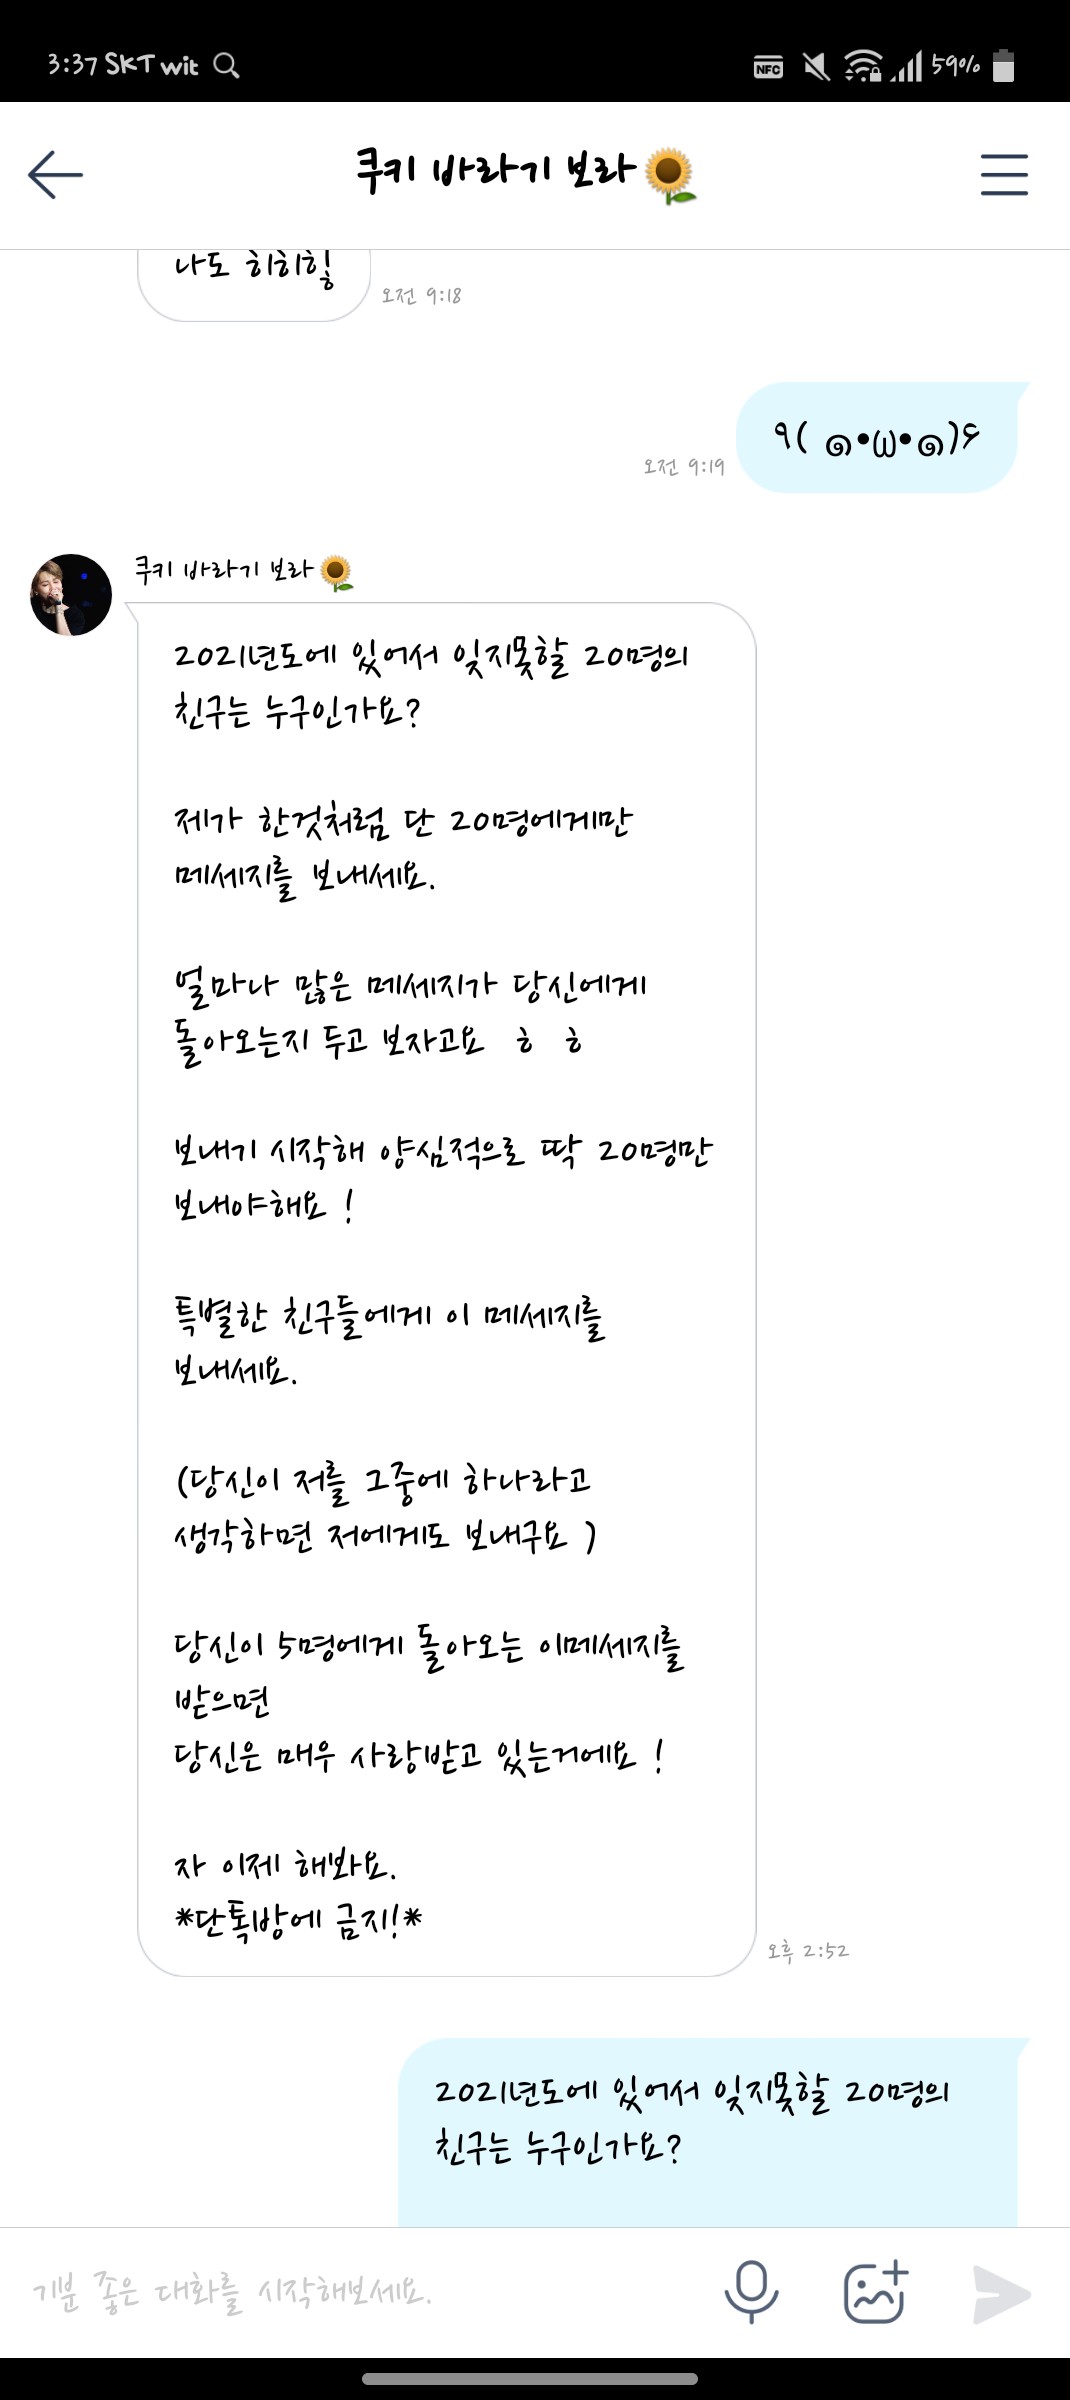 3:37 SKT wit
NFC
59%
쿠키 바라기 보라🌻
나도 히히힣
오전 9:18
٩( ๑•ω•๑)۶
오전 9:19
쿠키 바라기 보라🌻
2021년도에 있어서 잊지못할 20명의
친구는 누구인가요?
제가 한것처럼 단 20명에게만
메세지를 보내세요.
얼마나 많은 메세지가 당신에게
돌아오는지 두고 보자고요 ㅎ ㅎ
보내기 시작해 양심적으로 딱 20명만
보내야해요 !
특별한 친구들에게 이 메세지를
보내세요.
(당신이 저를 그중에 하나라고
생각하면 저에게도 보내구요 )
당신이 5명에게 돌아오는 이메세지를
받으면
당신은 매우 사랑받고 있는거에요 !
자 이제 해봐요.
*단톡방에 금지!*
오후 2:52
2021년도에 있어서 잊지못할 20명의
친구는 누구인가요?
기분 좋은 대화를 시작해보세요.